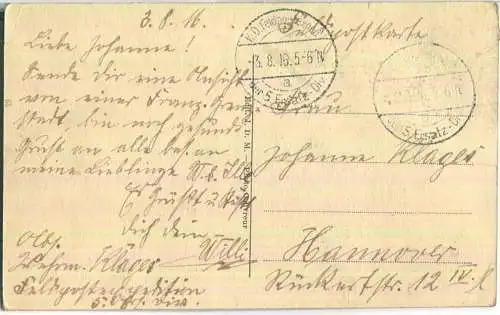 3.8.16
Feldpostkarte
Liebe Johanne!
Sende dir eine Ansicht
von einer Franz. Grenz
Stadt, bin noch gesund
Gruß an alle bes. an
meine Lieblinge
Es Grüßt u Küßt
dich dein
Willi
Abs.
Wehrm. Klages
Feldpostexpedition
5. Ers. Div.
K.D. Feldpost
3.8.16.5-6N
a
der 5. Ersatz-Div.
der 5. Ersatz-Div.
Frau
Johanne Klages
Hannover
Rückertstr. 12 IV.